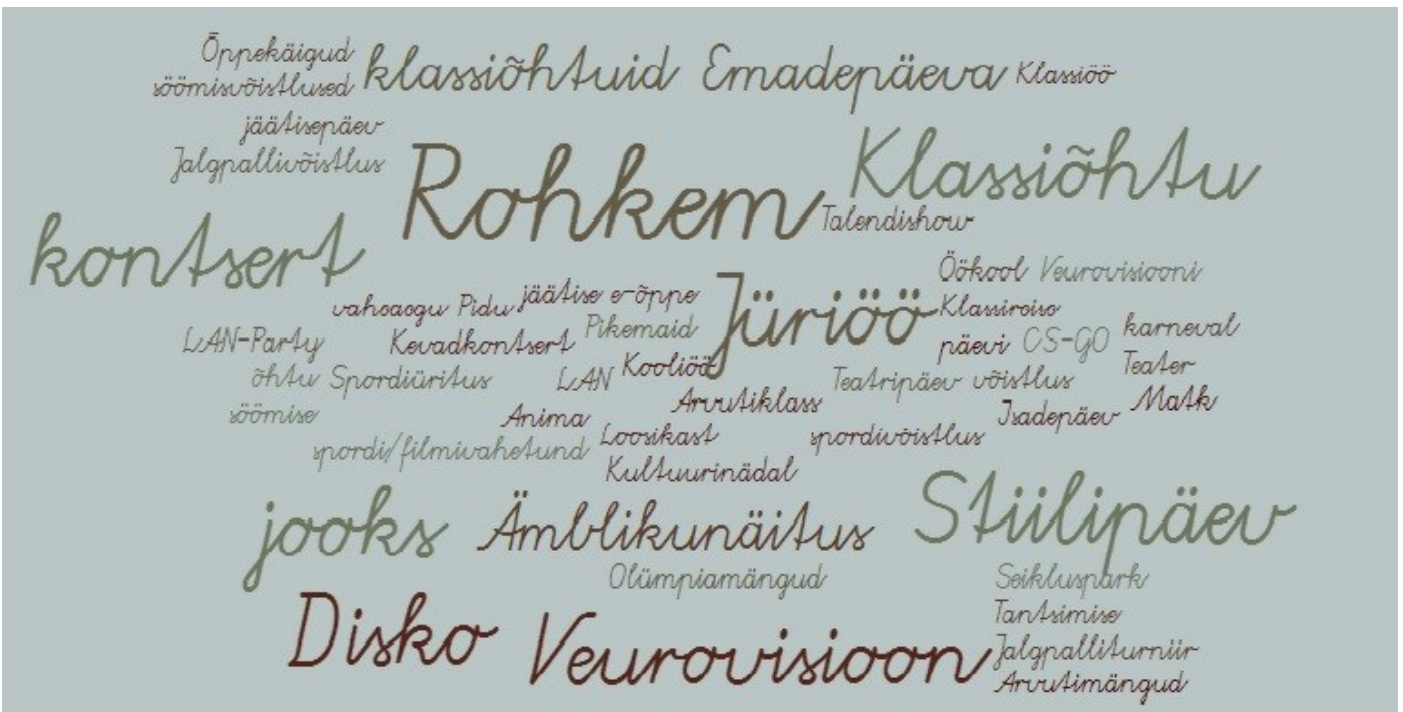 Õppekäigud
söömisvõistlused
klassiõhtuid Emadepäeva Klassiöö
jäätisepäev
Jalgpallivõistlus
Rohkem
Klassiõhtu
Talendishow
kontsert
Öökool Veurovisiooni
vahoaogu Pidu jäätise e-õppe
Jüriöö
Klassiroiso
LAN-Party
Kevadkontsert
Pikemaid
päevi CS-GO
karneval
õhtu Spordiüritus
LAN Kooliöö
Teatripäev võistlus
Teater
söömise
Anima
Arvutiklass
Isadepäev
Matk
spordi/filmivahetund
Loosikast
spordivõistlus
Kultuurinädal
jooks
Ämblikunäitus
Stiilipäev
Olümpiamängud
Seikluspark
Disko
Veurovisioon
Tantsimise
Jalgpalliturniir
Arvutimängud